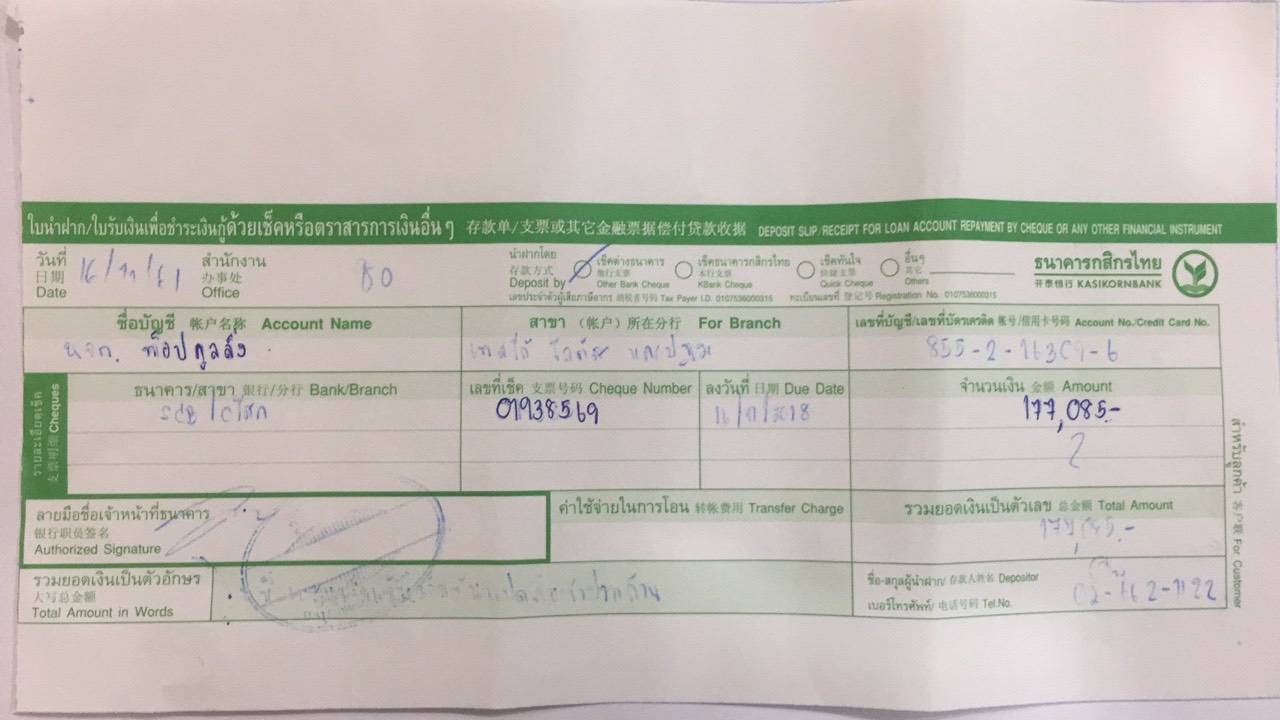 ใบนำฝาก/ใบรับเงินเพื่อชำระเงินกู้ด้วยเช็คหรือตราสารการเงินอื่นๆ 存款单/支票或其它金融票据偿付贷款收据 DEPOSIT SLIP/RECEIPT FOR LOAN ACCOUNT REPAYMENT BY CHEQUE OR ANY OTHER FINANCIAL INSTRUMENT
วันที่ 日期 Date 16/11/61 สำนักงาน 办事处 Office
นำฝากโดย 存款方式 Deposit by เช็คต่างธนาคาร 他行支票 Other Bank Cheque เช็คธนาคารกสิกรไทย 本行支票 KBank Cheque เช็คทันใจ 快捷支票 Quick Cheque อื่นๆ 其它 Others
เลขประจำตัวผู้เสียภาษีอากร 纳税者号码 Tax Payer I.D. 0107536000315 ทะเบียนเลขที่ 登记号 Registration No. 0107536000315
ธนาคารกสิกรไทย
开泰银行 KASIKORNBANK
ชื่อบัญชี 帐户名称 Account Name สาขา (帐户) 所在分行 For Branch เลขที่บัญชี/เลขที่บัตรเครดิต 帐号/信用卡号码 Account No./Credit Card No.
หจก. ท็อปคูลลิ่ง
รายละเอียดเช็ค 支票明细 Cheques
ธนาคาร/สาขา 银行/分行 Bank/Branch เลขที่เช็ค 支票号码 Cheque Number ลงวันที่ 日期 Due Date จำนวนเงิน 金额 Amount
SCB/อโศก 01938569 16/11/2018 177,085-
ลายมือชื่อเจ้าหน้าที่ธนาคาร 银行职员签名 Authorized Signature
ค่าใช้จ่ายในการโอน 转帐费用 Transfer Charge รวมยอดเงินเป็นตัวเลข 总金额 Total Amount
177,085-
รวมยอดเงินเป็นตัวอักษร 大写总金额 Total Amount in Words
ชื่อ-สกุลผู้นำฝาก/ 存款人姓名 Depositor
เบอร์โทรศัพท์/ 电话号码 Tel.No.
สำหรับลูกค้า 客户联 For Customer